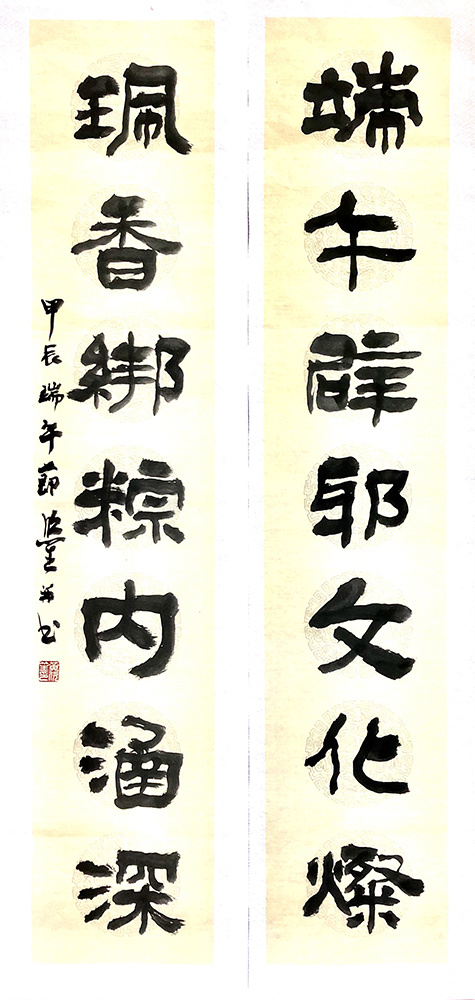 端午辟邪文化燦
珮香綁粽内涵深
甲辰端午節 並书